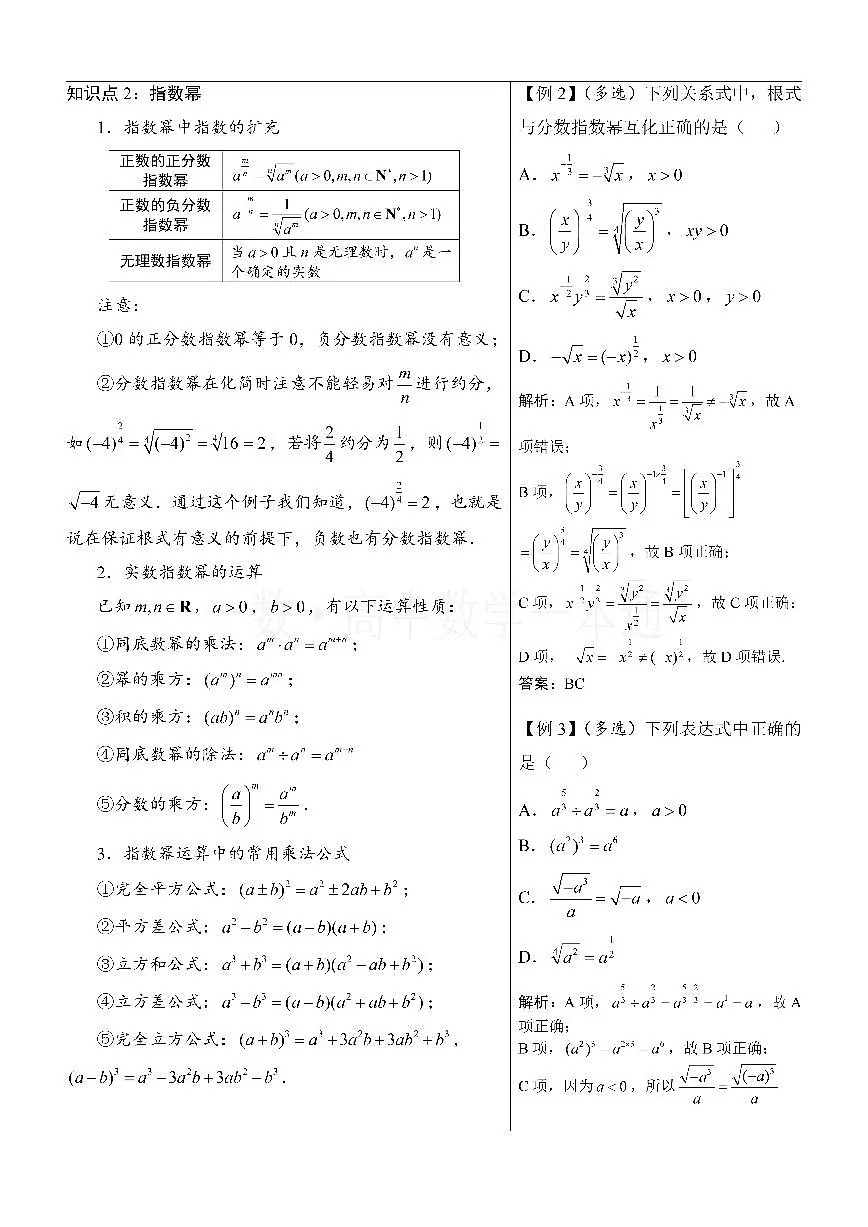 知识点 2：指数幂
1．指数幂中指数的扩充
正数的正分数指数幂 a^{m/n} = \sqrt[n]{a^m} (a＞0,m,n∈N*,n＞1)
正数的负分数指数幂 a^{-m/n} = 1/\sqrt[n]{a^m} (a＞0,m,n∈N*,n＞1)
无理数指数幂 当 a＞0 且 n 是无理数时，a^n 是一个确定的实数
注意：
①0 的正分数指数幂等于 0，负分数指数幂没有意义；
②分数指数幂在化简时注意不能轻易对 m/n 进行约分，
如 (−4)^{2/4} = \sqrt[4]{(−4)^2} = \sqrt[4]{16} = 2，若将 2/4 约分为 1/2，则 (−4)^{1/2} =
√−4 无意义．通过这个例子我们知道，(−4)^{2/4} = 2，也就是
说在保证根式有意义的前提下，负数也有分数指数幂．
2．实数指数幂的运算
已知 m,n∈R，a＞0，b＞0，有以下运算性质：
①同底数幂的乘法：a^m·a^n = a^{m+n}；
②幂的乘方：(a^m)^n = a^{mn}；
③积的乘方：(ab)^n = a^n b^n；
④同底数幂的除法：a^m ÷ a^n = a^{m−n}
⑤分数的乘方：(a/b)^m = a^m/b^m．
3．指数幂运算中的常用乘法公式
①完全平方公式：(a±b)^2 = a^2 ± 2ab + b^2；
②平方差公式：a^2 − b^2 = (a−b)(a+b)；
③立方和公式：a^3 + b^3 = (a+b)(a^2 − ab + b^2)；
④立方差公式：a^3 − b^3 = (a−b)(a^2 + ab + b^2)；
⑤完全立方公式：(a+b)^3 = a^3 + 3a^2b + 3ab^2 + b^3，
(a−b)^3 = a^3 − 3a^2b + 3ab^2 − b^3．
【例 2】（多选）下列关系式中，根式
与分数指数幂互化正确的是（ ）
A．x^{-1/3} = −\sqrt[3]{x}，x＞0
B．(x/y)^{-3/4} = \sqrt[4]{(y/x)^3}，xy＞0
C．x^{-1/2} y^{2/3} = \sqrt[3]{y^2}/√x，x＞0，y＞0
D．−√x = (−x)^{1/2}，x＞0
解析：A 项，x^{-1/3} = 1/x^{1/3} = 1/\sqrt[3]{x} ≠ −\sqrt[3]{x}，故 A
项错误；
B 项，(x/y)^{-3/4} = (x/y)^{-1×3/4} = [(x/y)^{-1}]^{3/4}
= (y/x)^{3/4} = \sqrt[4]{(y/x)^3}，故 B 项正确；
C 项，x^{-1/2} y^{2/3} = \sqrt[3]{y^2}/x^{1/2} = \sqrt[3]{y^2}/√x，故 C 项正确；
D 项， √x = x^{1/2} ≠ ( x)^{1/2}，故 D 项错误.
答案：BC
【例 3】（多选）下列表达式中正确的
是（ ）
A．a^{5/3} ÷ a^{2/3} = a，a＞0
B．(a^2)^3 = a^6
C．√(−a^3)/a = √−a，a＜0
D．\sqrt[4]{a^2} = a^{1/2}
解析：A 项，a^{5/3} ÷ a^{2/3} = a^{5/3−2/3} = a^1 = a，故 A
项正确；
B 项，(a^2)^3 = a^{2×3} = a^6，故 B 项正确；
C 项，因为 a＜0，所以 √(−a^3)/a = √((−a)^3)/a